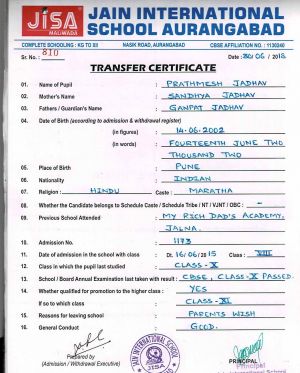 JiSA
MALIWADA
JAIN INTERNATIONAL
SCHOOL AURANGABAD
COMPLETE SCHOOLING : KG TO XII NASIK ROAD, AURANGABAD CBSE AFFILIATION NO. : 1130340
Sr. No. : 810 Date : 30/06/2018
TRANSFER CERTIFICATE
01. Name of Pupil : PRATHMESH JADHAV
02. Mother's Name : SANDHYA JADHAV
03. Fathers / Guardian's Name : GANPAT JADHAV
04. Date of Birth (according to admission & withdrawal register)
(in figures) : 14-06-2002
(in words) : FOURTEENTH JUNE TWO
THOUSAND TWO
05. Place of Birth : PUNE
06. Nationality : INDIAN
07. Religion : HINDU Caste : MARATHA
08. Whether the Candidate belongs to Schedule Caste / Schedule Tribe / NT / VJNT / OBC : -
09. Previous School Attended : MY RICH DAD'S ACADEMY,
JALNA.
10. Admission No. : 1173
11. Date of admission in the school with class : Dt. 16/06/2015 Class VIII
12. Class in which the pupil last studied : CLASS-X
13. School / Board Annual Examination last taken with result : CBSE, CLASS-X PASSED.
14. Whether qualified for promotion to the higher class : YES
If so to which class : CLASS-XI
15. Reasons for leaving school : PARENTS WISH
16. General Conduct : GOOD.
Prepared by
(Admission / Withdrawal Executive)
JAIN INTERNATIONAL SCHOOL
JISA
PRINCIPAL
Principal